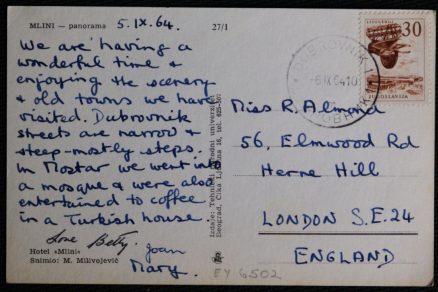 MLINI — panorama 5.IX.64. 27/1
We are having a
wonderful time &
enjoying the scenery
& old towns we have
visited. Dubrovnik
streets are narrow &
steep-mostly steps.
In Mostar we went into
a mosque & were also
entertained to coffee
in a Turkish house.
Love Betty.
Joan
Mary.
Hotel »Mlini«
Snimio: M. Milivojević
Beograd, Čika Ljubina
30
JUGOSLAVIJA
DUBROVNIK
-6.IX.64.10
Miss R. Almond
56, Elmwood Rd
Herne Hill
LONDON S.E.24
ENGLAND
EY 6502